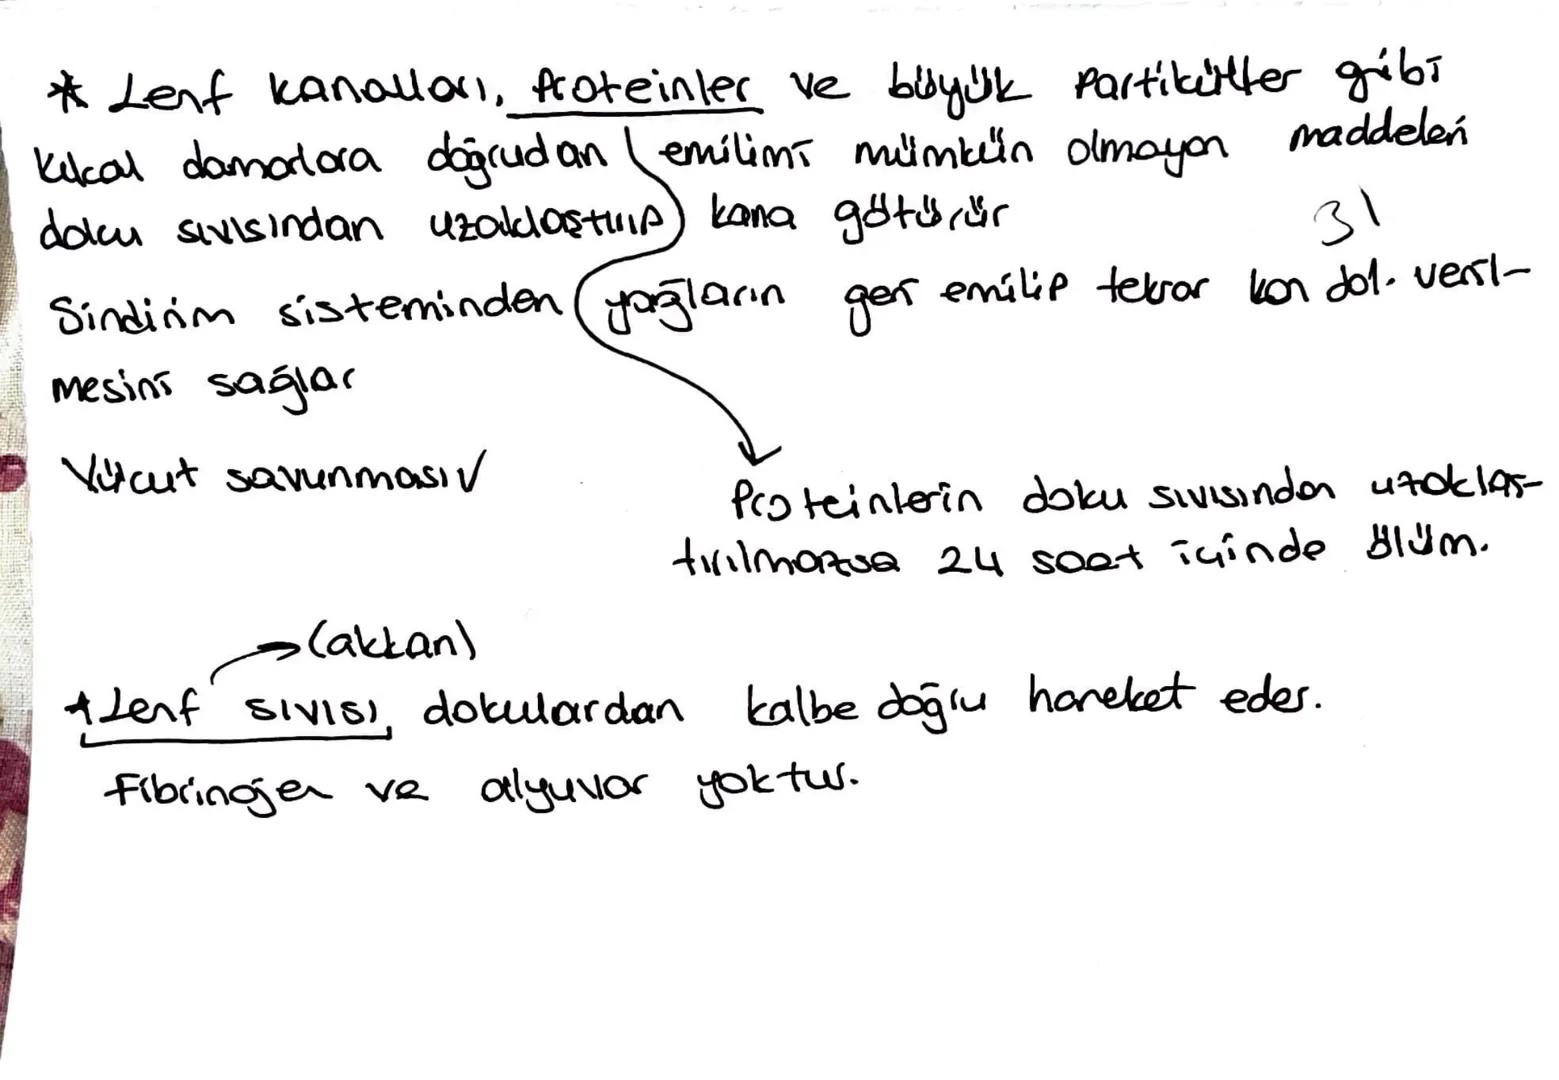 * Lenf kanalları, Proteinler ve büyük Partiküller gibi
kılcal damarlara doğrudan emilimi mümkün olmayan maddeleri
doku sıvısından uzaklaştırıp kana götürür
31
Sindirim sisteminden yağların geri emilip tekrar kan dol. veril-
mesini sağlar
Vücut savunması √
Proteinlerin doku sıvısından uzaklaş-
tırılmazsa 24 saat içinde ölüm.
(akkan)
* Lenf sıvısı, dokulardan kalbe doğru hareket eder.
Fibrinojen ve alyuvar yoktur.